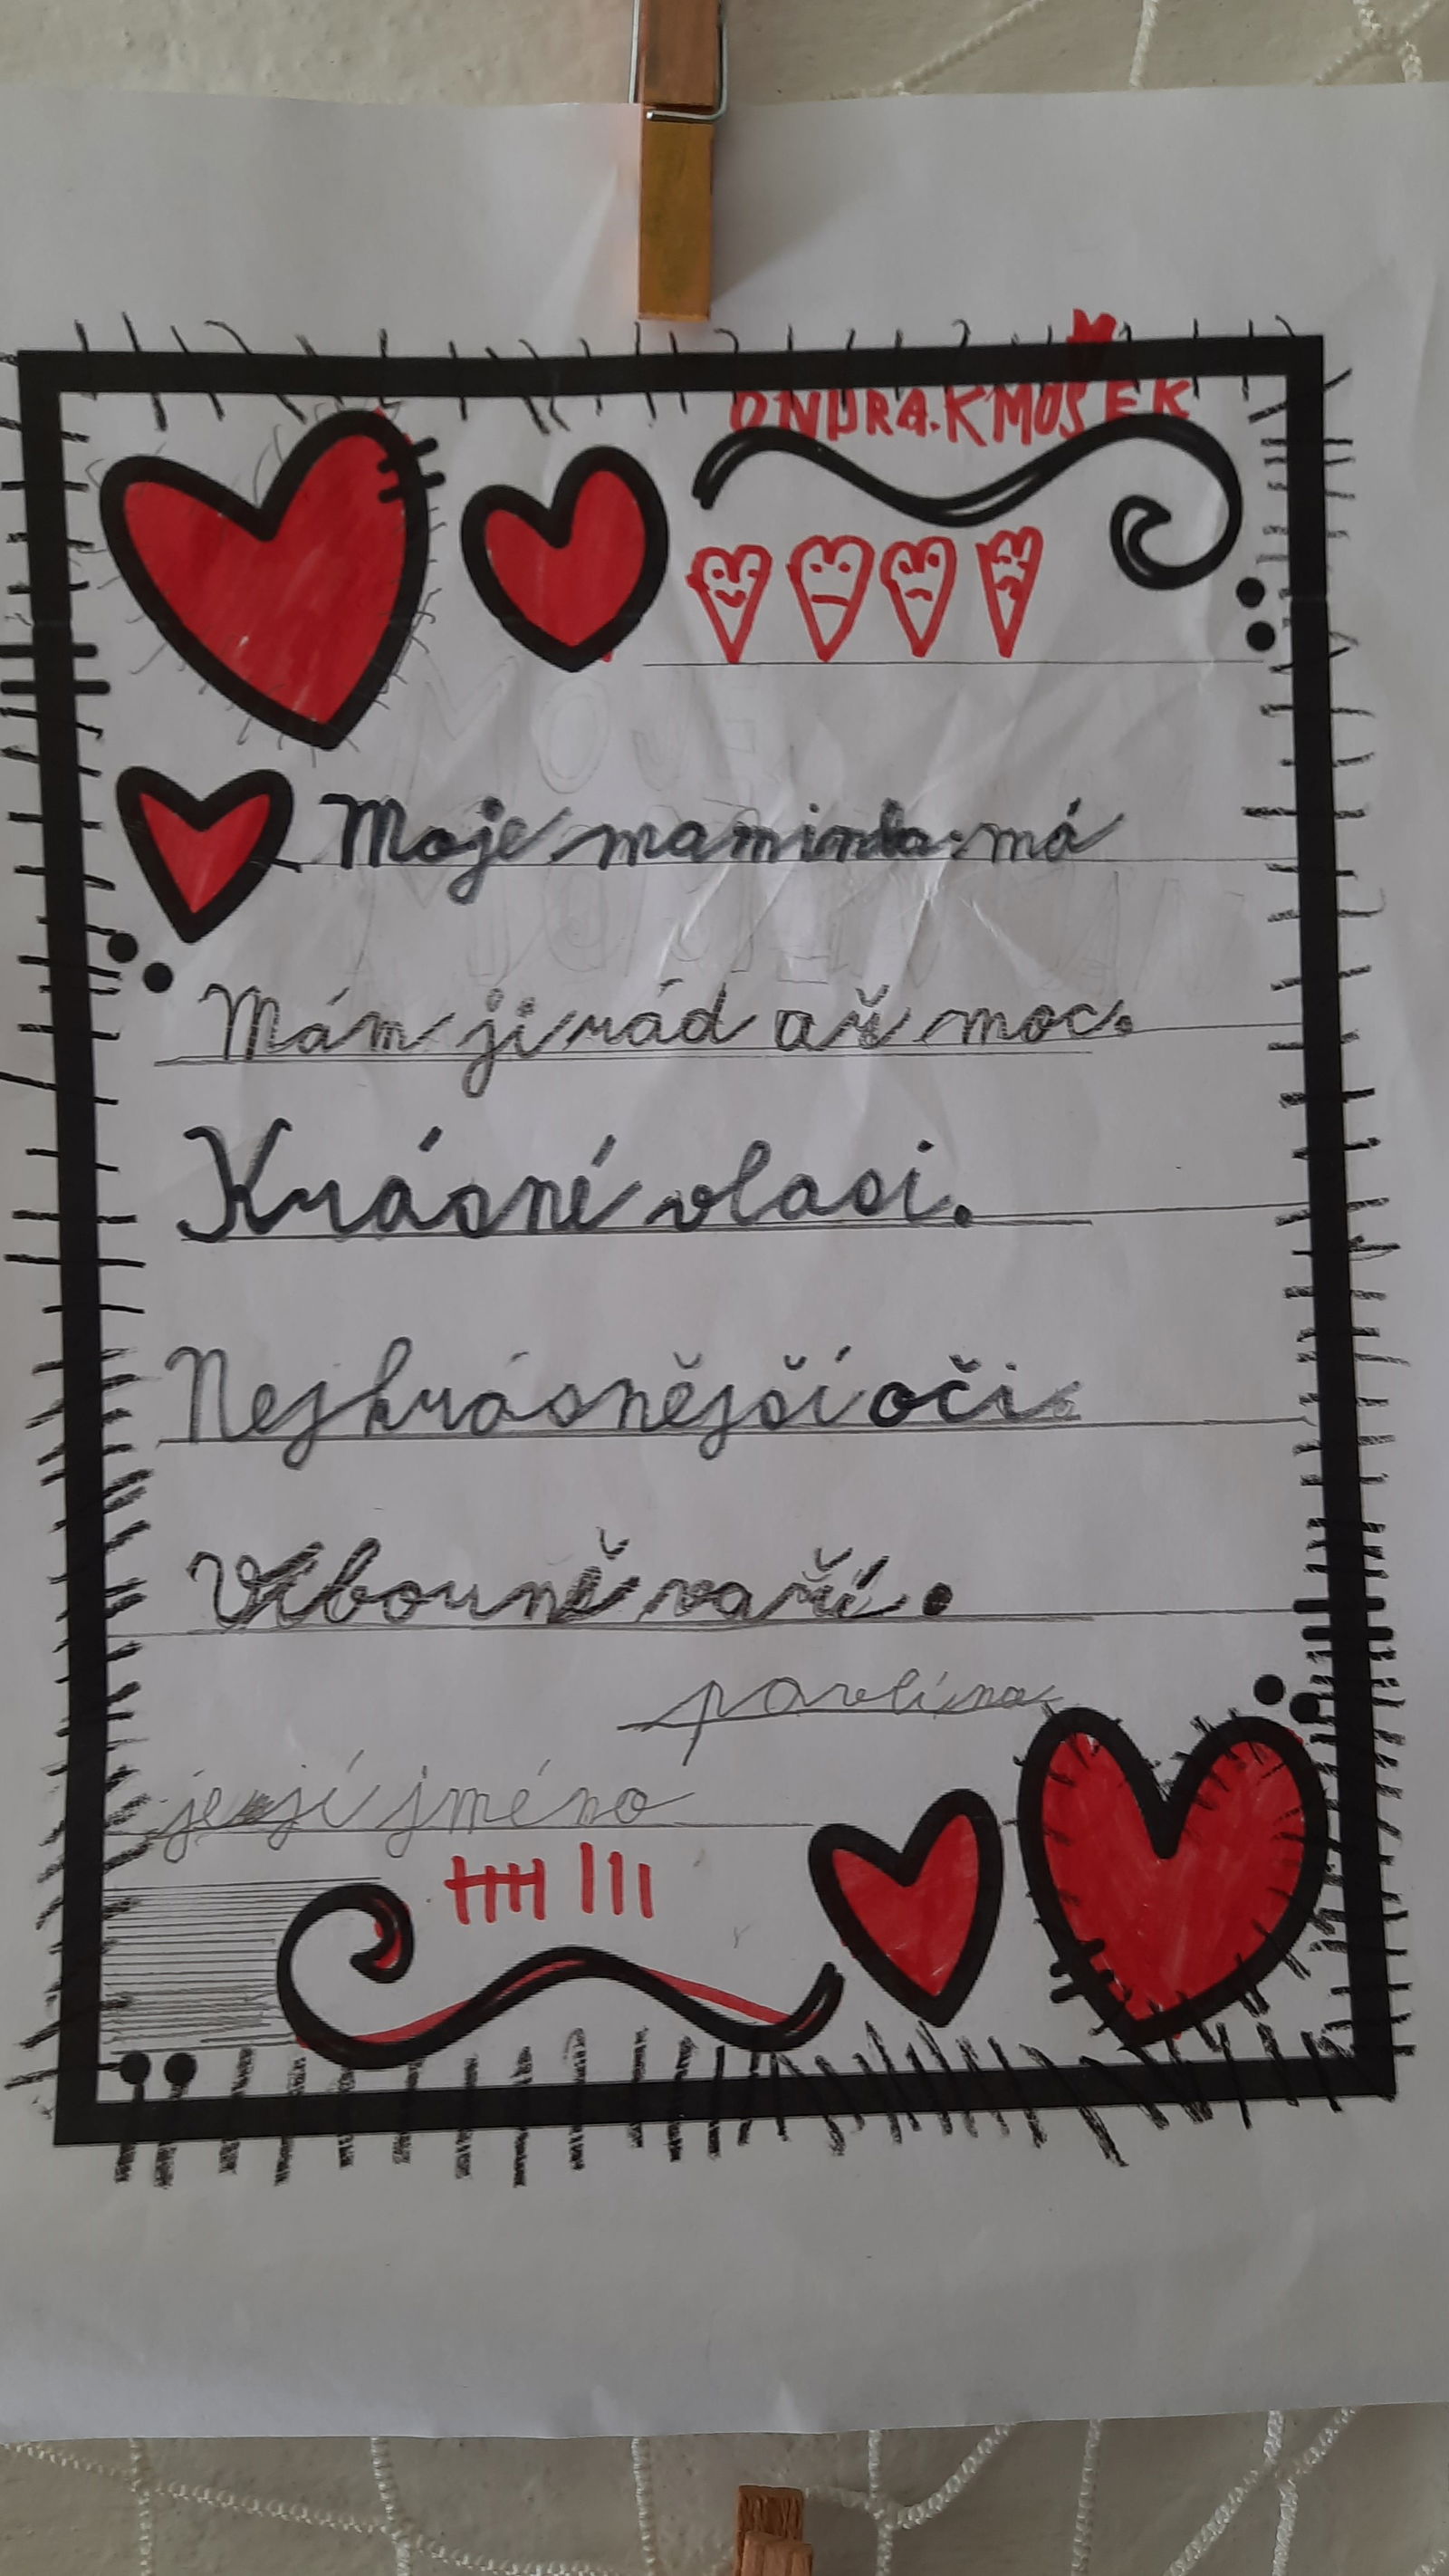 ONDRA.KMOŠEK
Moje maminka má
Mám ji rád až moc.
Krásné vlasi.
Nejkrásnější oči.
Víborně vaří.
pavlína
její jméno